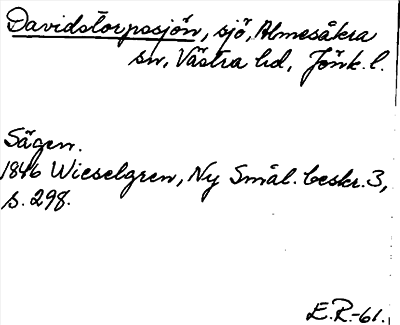 Davidstorpssjön, sjö, Almesåkra
sn, Västra hd, Jönk. l.
Sägen.
1846 Wieselgren, Ny Smål. beskr. 3,
s. 298.
E.R.-61.